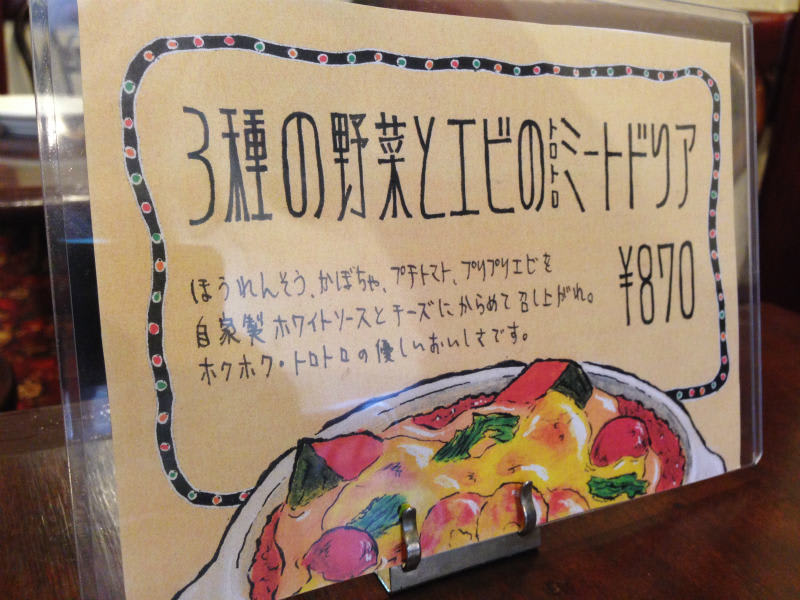 3種の野菜とエビのトロトロミートドリア
¥870
ほうれんそう、かぼちゃ、プチトマト、プリプリエビを
自家製ホワイトソースとチーズにからめて召し上がれ。
ホクホク・トロトロの優しいおいしさです。